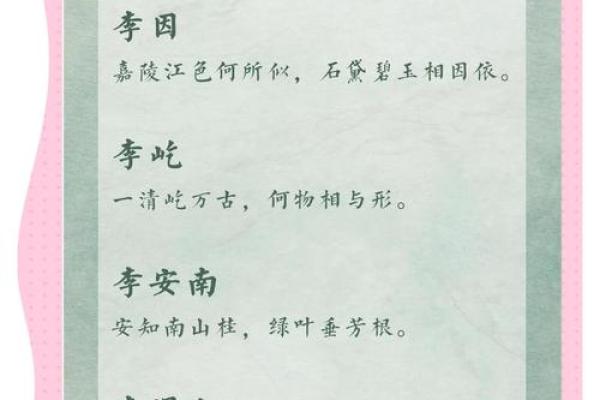 李因
嘉陵江色何所似，石黛碧玉相因依。
李屹
一清屹万古，何物相与形。
李安南
安知南山桂，绿叶垂芳根。